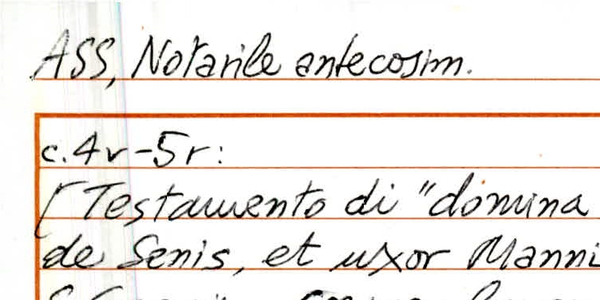 ASS, Notarile antecosim.
c. 4v-5r:
[Testamento di "domina
de Senis, et uxor Manni